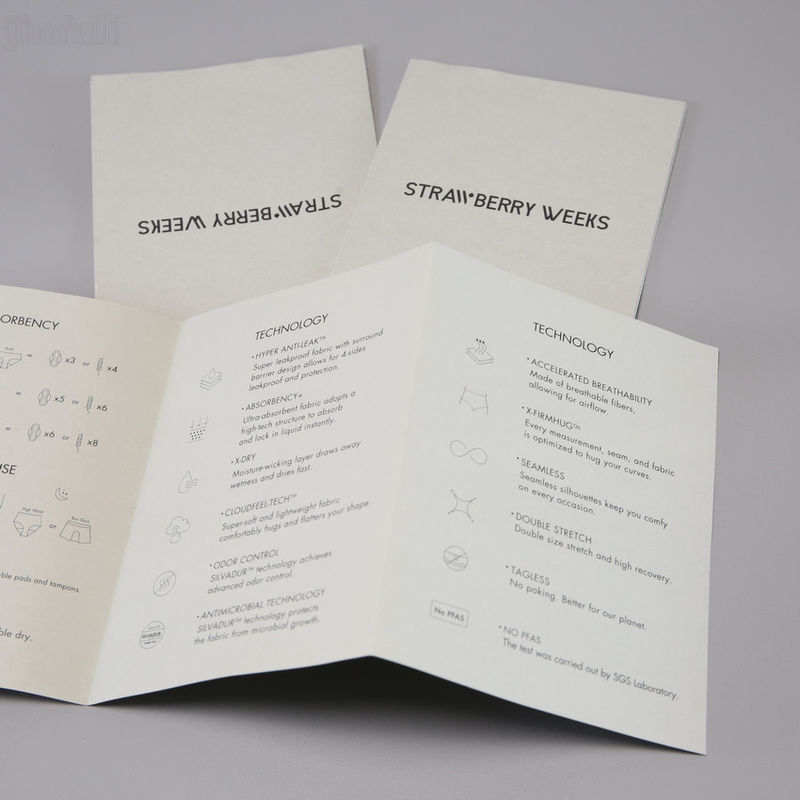 jinfuli
STRAWBERRY WEEKS
STRAWBERRY WEEKS
ORBENCY
= x3 or x4
= x5 or x6
= x6 or x8
USE
High Waist
or
Boy Short
ble pads and tampons.
ble dry.
TECHNOLOGY
• HYPER ANTI-LEAK™
Super leakproof fabric with surround
barrier design allows for 4-sides
leakproof and protection.
• ABSORBENCY+
Ultra-absorbent fabric adopts a
high-tech structure to absorb
and lock in liquid instantly.
• X-DRY
Moisture-wicking layer draws away
wetness and dries fast.
• CLOUDFEEL-TECH™
Super-soft and lightweight fabric
comfortably hugs and flatters your shape.
• ODOR CONTROL
SILVADUR™ technology achieves
advanced odor control.
• ANTIMICROBIAL TECHNOLOGY
SILVADUR™ technology protects
the fabric from microbial growth.
TECHNOLOGY
• ACCELERATED BREATHABILITY
Made of breathable fibers,
allowing for airflow.
• X-FIRMHUG™
Every measurement, seam, and fabric
is optimized to hug your curves.
• SEAMLESS
Seamless silhouettes keep you comfy
on every occasion.
• DOUBLE STRETCH
Double size stretch and high recovery.
• TAGLESS
No poking. Better for our planet.
No PFAS
• NO PFAS
The test was carried out by SGS Laboratory.